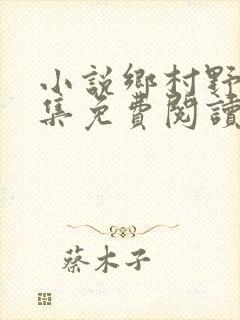 小說鄉村野
集免費閱讀
蔡木子